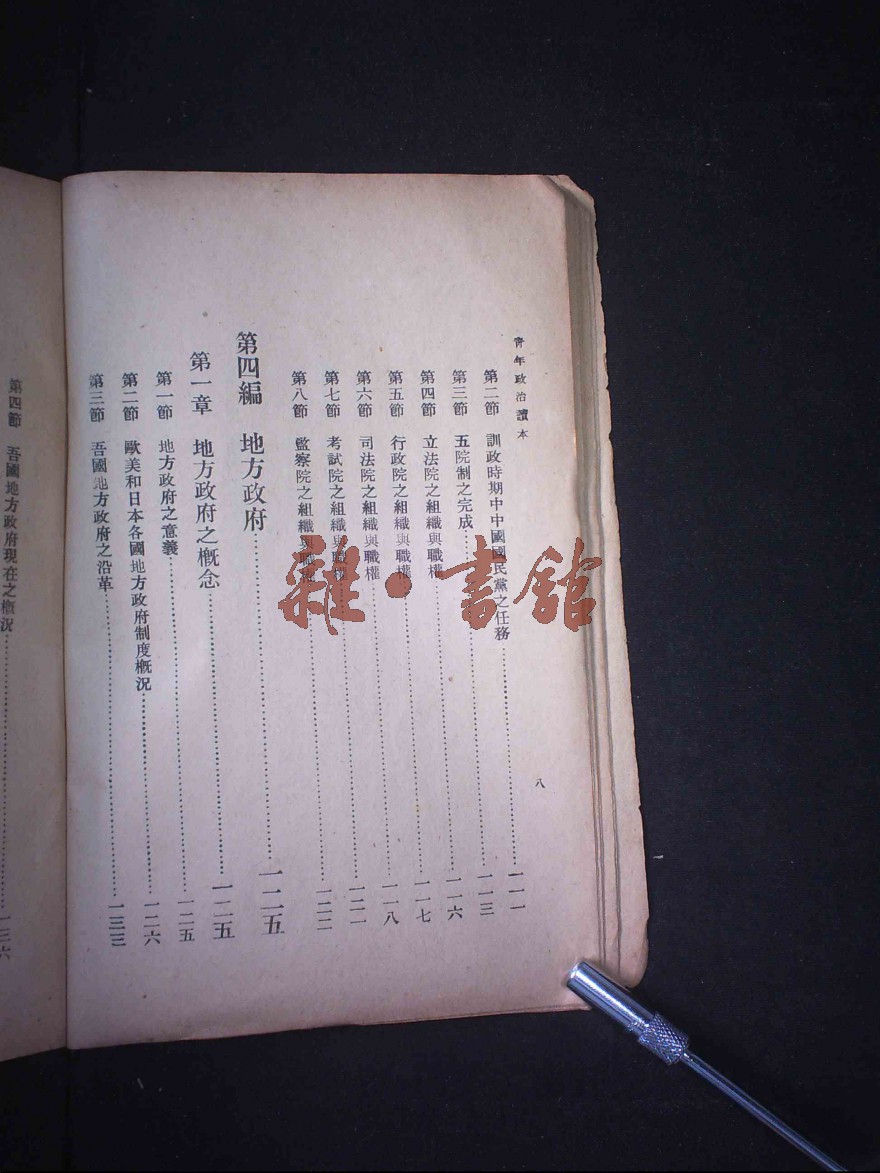 青年政治讀本
第二節 訓政時期中中國國民黨之任務……一一一
第三節 五院制之完成……一一三
第四節 立法院之組織與職權……一一六
第五節 行政院之組織與職權……一一七
第六節 司法院之組織與職權……一一八
第七節 考試院之組織與職權……一二一
第八節 監察院之組織與職權……一二二
第四編 地方政府……一二五
第一章 地方政府之槪念……一二五
第一節 地方政府之意義……一二五
第二節 歐美和日本各國地方政府制度槪況……一二六
第三節 吾國地方政府之沿革……一三三
八
第四節 吾國地方政府現在之槪況……一三六
雜·書館